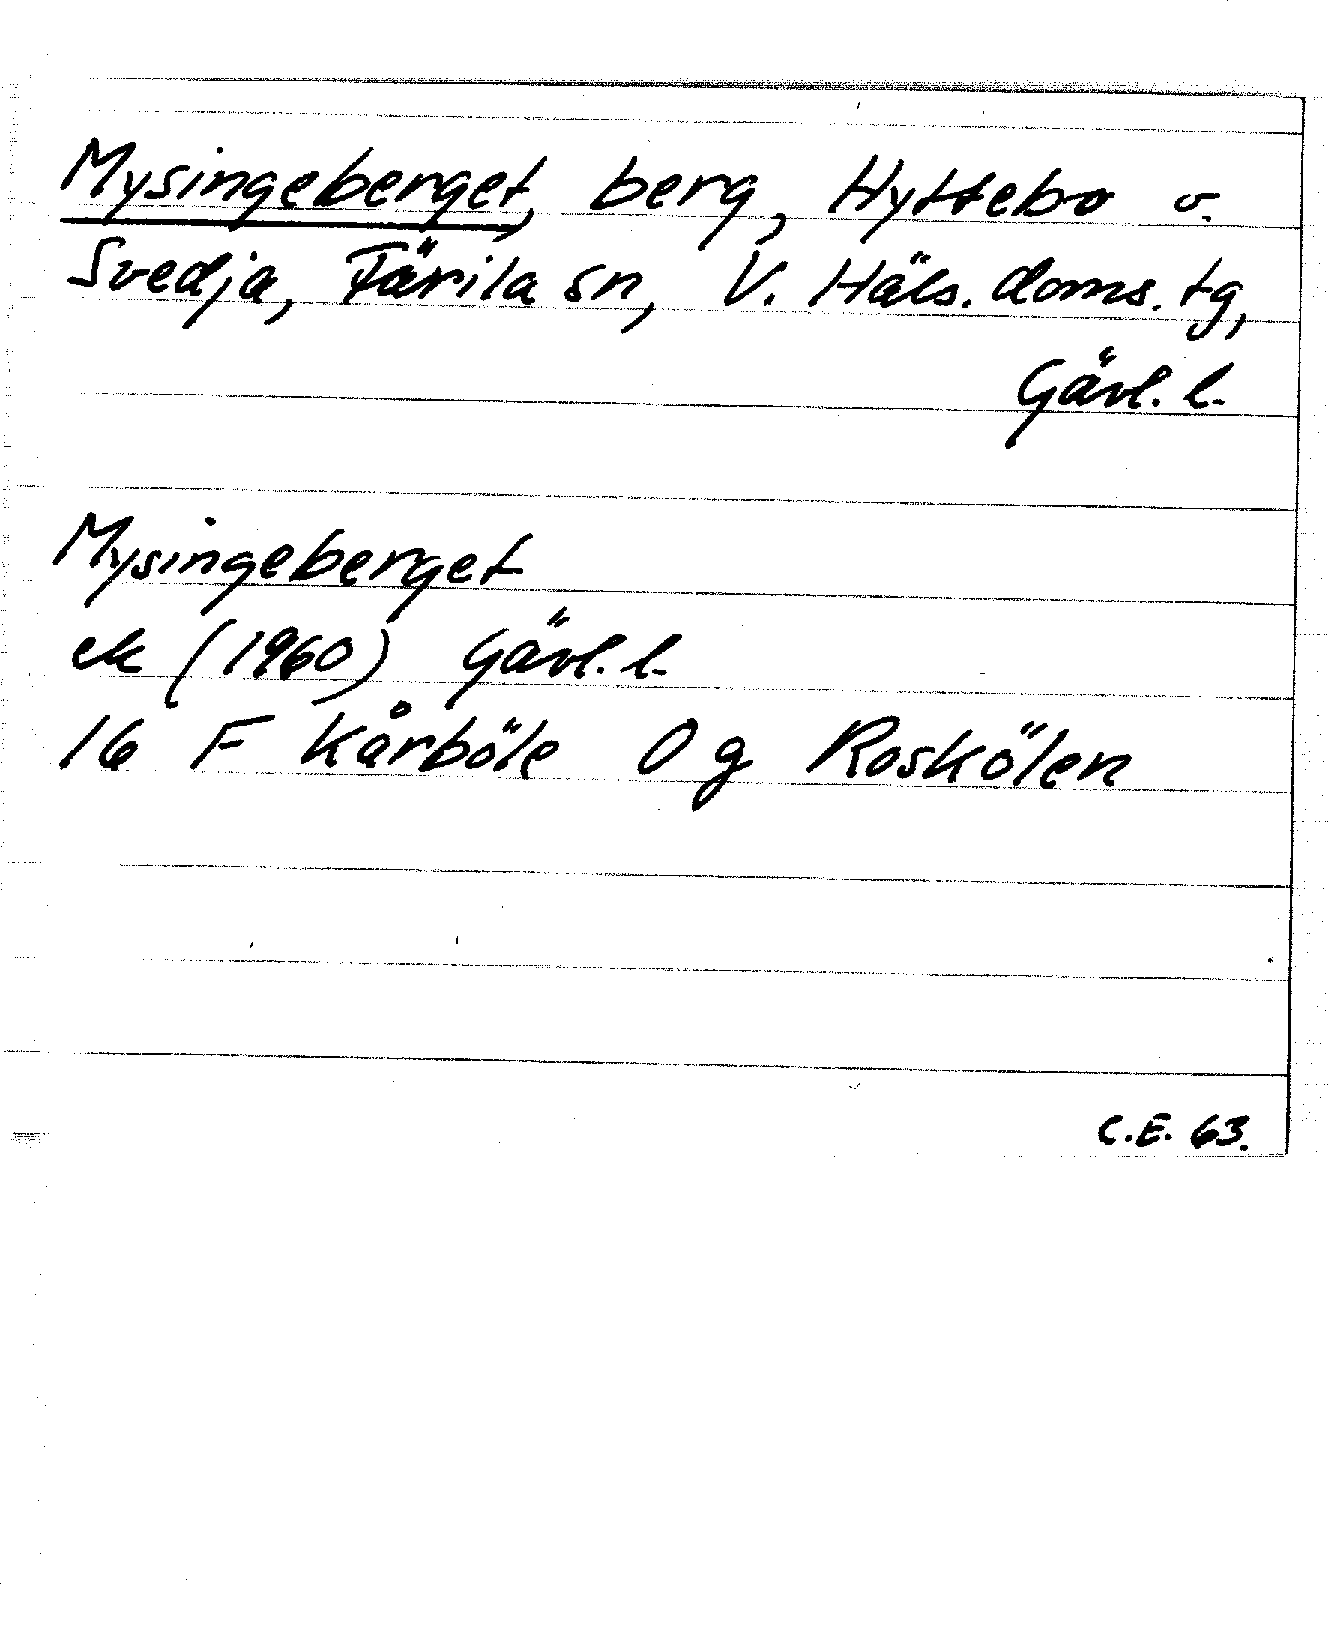 Mysingeberget, berg, Hyttebo o.
Svedja, Färila sn, V. Häls. doms. tg,
Gävl. l.
Mysingeberget
ek (1960) Gävl. l.
16 F Kårböle 0 g Roskölen
C.E. 63.